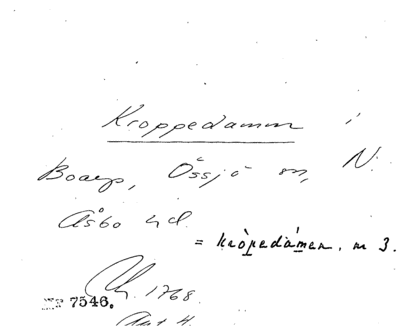 Kroppedamm i
Boarp, Össjö sn, N.
Åsbo hd.
= kròpedámen. m 3.
1768.
No 7546.